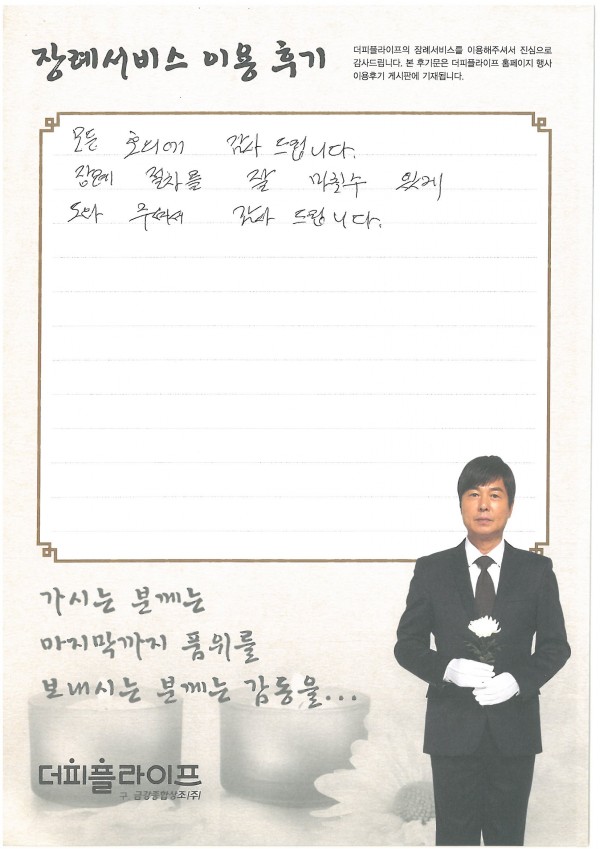 장례서비스 이용 후기
더피플라이프의 장례서비스를 이용해주셔서 진심으로
감사드립니다. 본 후기문은 더피플라이프 홈페이지 행사
이용후기 게시판에 기재됩니다.
모든 호의에 감사 드립니다.
장례 절차를 잘 마칠수 있게
도와 주셔서 감사 드립니다.
가시는 분께는
마지막까지 품위를
보내시는 분께는 감동을...
더피플라이프
구. 금강종합상조(주)